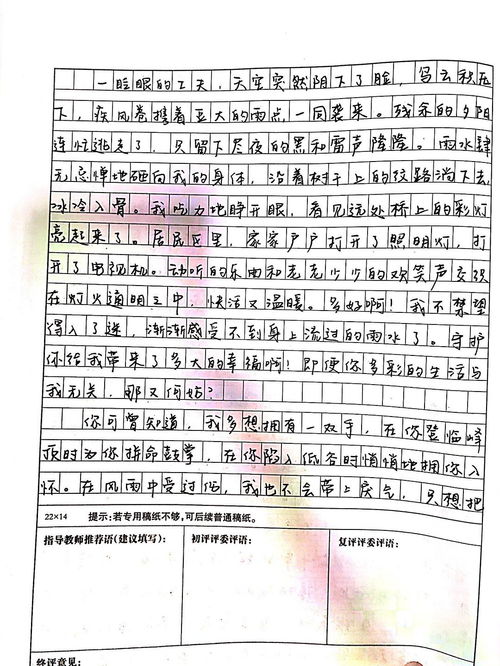 一眨眼的工夫，天空突然阴下了脸，乌云积压
下，疾风卷携着豆大的雨点一同袭来。残余的夕阳
连忙逃走了，只留下尽夜的黑和雷声隆隆。雨水肆
无忌惮地砸向我的身体，沿着树干上的纹路淌下去，
冰冷入骨。我吃力地睁开眼，看见远处桥上的彩灯
亮起来了。居民区里，家家户户打开了照明灯，打
开了电视机。动听的乐曲和老老少少的欢笑声交织
在灯火通明之中，快活又温暖。多好啊！我不禁望
得入了迷，渐渐感受不到身上流过的雨水了。守护
你给我带来了多大的幸福啊！即便你多彩的生活与
我无关，那又何妨？
你可曾知道，我多想拥有一双手，在你登临峰
顶时为你拼命鼓掌，在你陷入低谷时悄悄地拥你入
怀。在风雨中受过伤，我也不会带上戾气，只想把
22×14 提示：若专用稿纸不够，可后续普通稿纸。
指导教师推荐语(建议填写)： 初评评委评语： 复评评委评语：
终评意见：